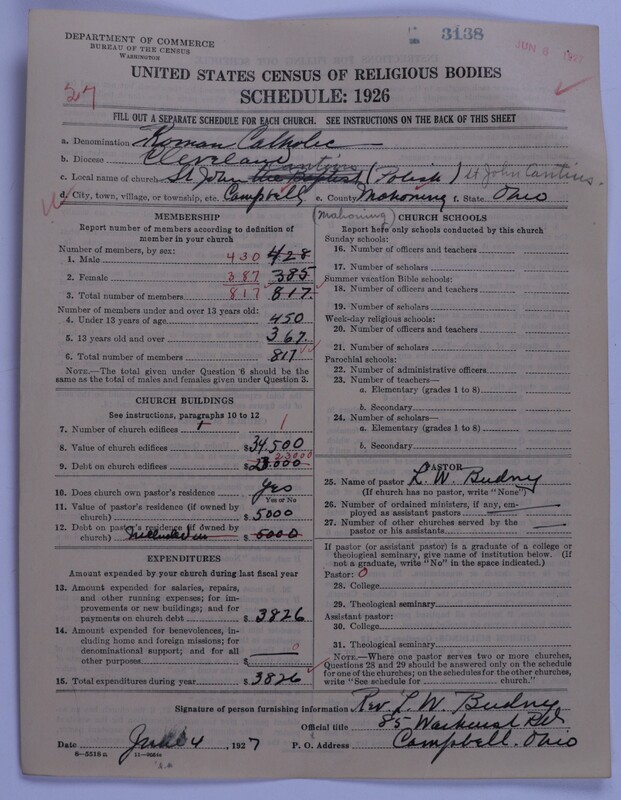 DEPARTMENT OF COMMERCE
BUREAU OF THE CENSUS
WASHINGTON
3138
JUN 6
UNITED STATES CENSUS OF RELIGIOUS BODIES
SCHEDULE: 1926
27
FILL OUT A SEPARATE SCHEDULE FOR EACH CHURCH. SEE INSTRUCTIONS ON THE BACK OF THIS SHEET
a. Denomination Roman Catholic
b. Diocese Cleveland
c. Local name of church St John the Baptist Cantius (Polish) St John Cantius.
d. City, town, village, or township, etc. Campbell e. County Mahoning f. State Ohio
(Mahoning)
MEMBERSHIP
Report number of members according to definition of member in your church
Number of members, by sex:
1. Male 430 428
2. Female 387 385
3. Total number of members 817 817
Number of members under and over 13 years old:
4. Under 13 years of age 450
5. 13 years old and over 367
6. Total number of members 817
NOTE.—The total given under Question 6 should be the
same as the total of males and females given under Question 3.
CHURCH BUILDINGS
See instructions, paragraphs 10 to 12
7. Number of church edifices 1 1
8. Value of church edifices $34.500
23000
9. Debt on church edifices $23.000
10. Does church own pastor's residence yes
Yes or No
11. Value of pastor's residence (if owned by
church) $5000
12. Debt on pastor's residence (if owned by
church) Included in $5000
EXPENDITURES
Amount expended by your church during last fiscal year
13. Amount expended for salaries, repairs,
and other running expenses; for im-
provements or new buildings; and for
payments on church debt $3826
14. Amount expended for benevolences, in-
cluding home and foreign missions; for
denominational support; and for all
other purposes $ 0
15. Total expenditures during year $3826
CHURCH SCHOOLS
Report here only schools conducted by this church
Sunday schools:
16. Number of officers and teachers
17. Number of scholars
Summer vacation Bible schools:
18. Number of officers and teachers
19. Number of scholars
Week-day religious schools:
20. Number of officers and teachers
21. Number of scholars
Parochial schools:
22. Number of administrative officers
23. Number of teachers—
a. Elementary (grades 1 to 8)
b. Secondary
24. Number of scholars—
a. Elementary (grades 1 to 8)
b. Secondary
PASTOR
25. Name of pastor L. W. Budny
(If church has no pastor, write "None")
26. Number of ordained ministers, if any, em-
ployed as assistant pastors
27. Number of other churches served by the
pastor or his assistants
If pastor (or assistant pastor) is a graduate of a college or
theological seminary, give name of institution below. (If
not a graduate, write "No" in the space indicated.)
Pastor: 0
28. College
29. Theological seminary
Assistant pastor:
30. College
31. Theological seminary
NOTE.—Where one pastor serves two or more churches,
Questions 28 and 29 should be answered only on the schedule
for one of the churches; on the schedules for the other churches,
write "See schedule for church."
Signature of person furnishing information Rev. L. W. Budny
Official title 85
Date June 4, 1927 P. O. Address Campbell. Ohio
8—5518 a